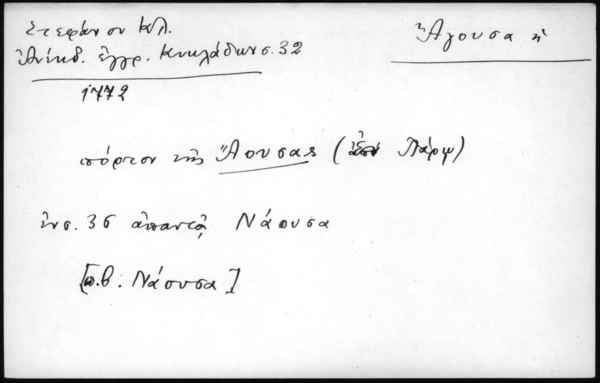 Στεφάνου Κλ.
Ἀνέκδ. ἔγγρ. Κυκλάδων σ. 32
Ἄγουσα ἡ
1772
πόρτον τῆς Ἄουσας (ἐν Πάρῳ)
ἐν σ. 36 ἀπαντᾷ Νάουσα
[π.β. Νάουσα]